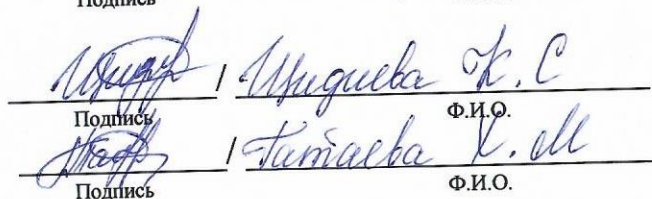 Подпись
/ Идиева К. С
Подпись Ф.И.О.
/ Татаева Х. М
Подпись Ф.И.О.